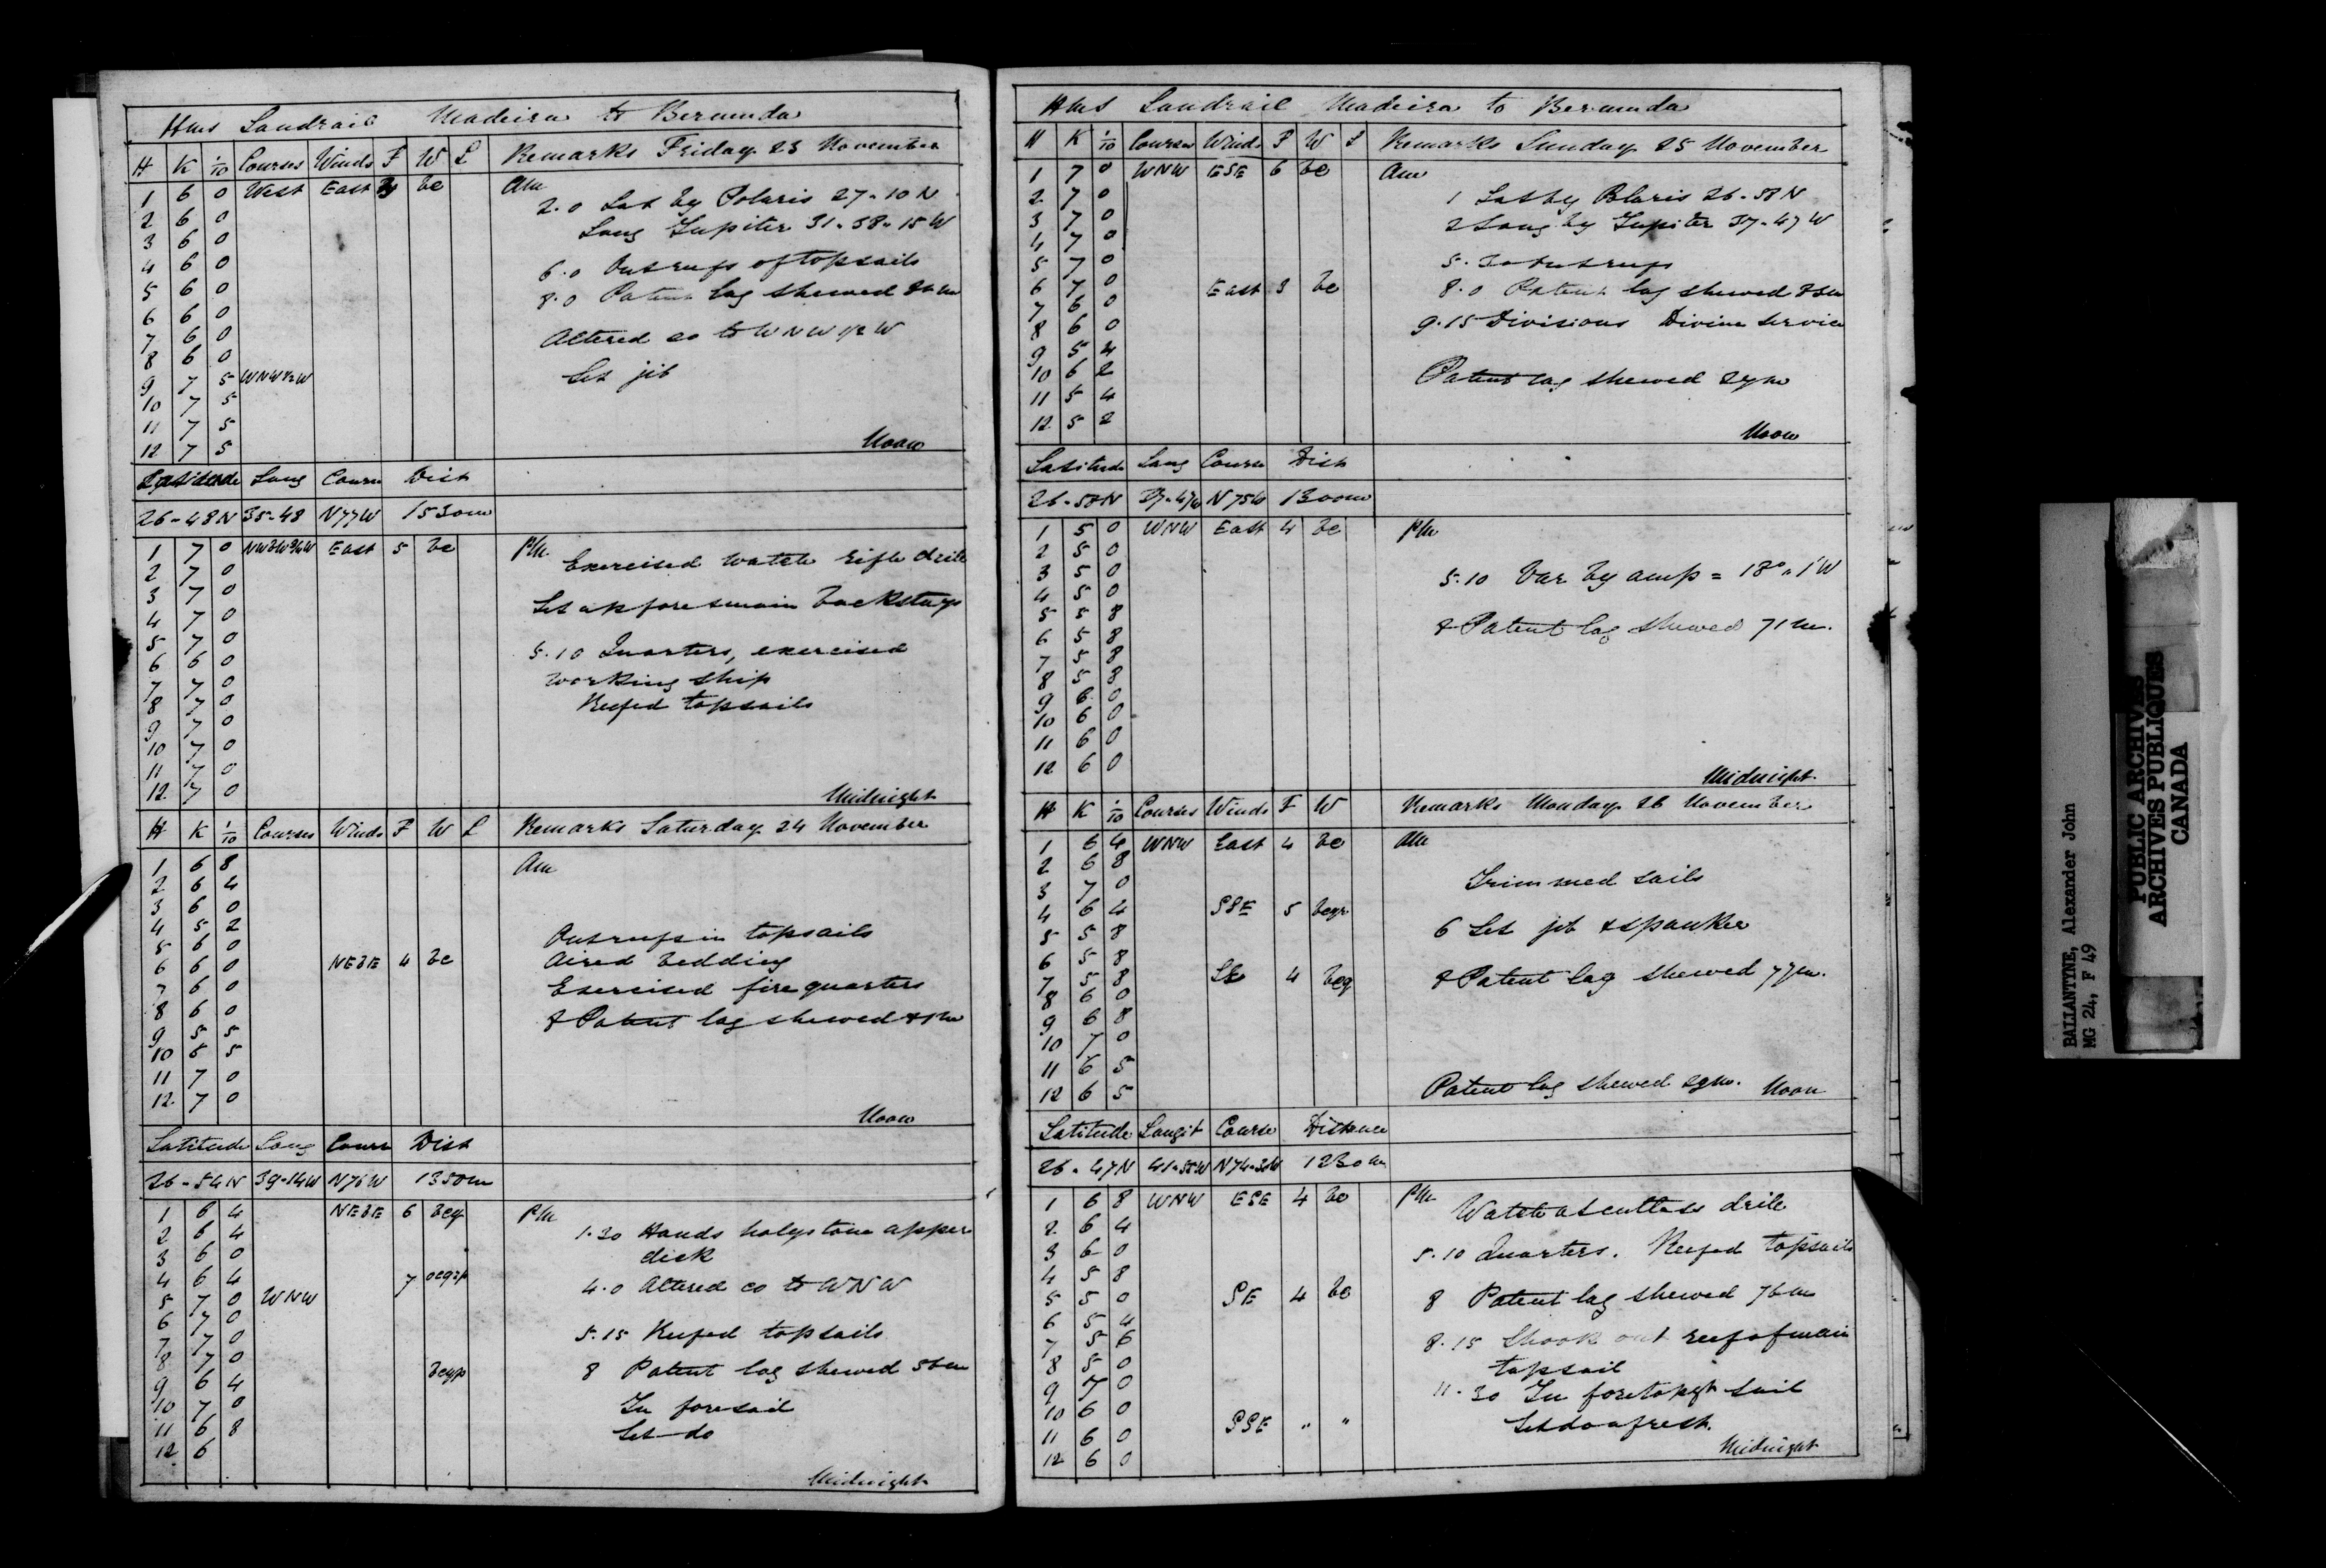 Hms Landrail Madeira to Bermuda
H K 1/10 Courses Winds F W L Remarks Friday 23 November
1 6 0 West East bc Am
2 6 0 2.0 Lat by Polaris 27-10 N
3 6 0 Long Jupiter 31-38-15 W
4 6 0 6.0 Out reefs of topsails
5 6 0 8.0 Patent log shewed
6 6 0
7 6 0 Altered co to WNW 1/2 W
8 6 0 Set jib
9 7 5 WNW1/2W
10 7 5
11 7 5
12 7 5 Noon
Latitude Long Course Dist
26-48N 35-48 N77W 1530m
1 7 0 NWbW3/4W East 5 bc PM Exercised watch rifle drill
2 7 0
3 7 0 Set up fore & main backstays
4 7 0
5 7 0 5.10 Quarters, exercised
6 6 0 working ship
7 7 0 Reefed topsails
8 7 0
9 7 0
10 7 0
11 7 0
12 7 0 Midnight
H K 1/10 Courses Winds F W L Remarks Saturday 24 November
1 6 8 Am
2 6 4
3 6 0
4 5 2 Out reefs in topsails
5 6 0 Aired bedding
6 6 0 NEbE 4 bc Exercised fire quarters
7 6 0
8 6 0 8 Patent log shewed
9 5 5
10 6 5
11 7 0
12 7 0 Noon
Latitude Long Course Dist
26-54N 39-14W N76W 1350m
1 6 4 NEbE 6 bcq PM
2 6 4 1.30 Hands holystone upper
3 6 0 deck
4 6 4 7 ocqrp 4.0 Altered co to WNW
5 7 0 WNW
6 7 0 5.15 Reefed topsails
7 7 0
8 7 0 bcqp 8 Patent log shewed 56m
9 6 4
10 7 0 In foresail
11 6 8 Set do
12 6 Midnight
Hms Landrail Madeira to Bermuda
H K 1/10 Courses Winds F W L Remarks Sunday 25 November
1 7 0 WNW ESE 6 bc Am
2 7 0 1 Lat by Polaris 26-58 N
3 7 0 2 Long by Jupiter 37-47 W
4 7 0
5 7 0 5.30 Out reefs
6 7 0 East 3 bc 8.0 Patent log shewed
7 6 0
8 6 0 9.15 Divisions Divine Service
9 5 4
10 6 2 Patent log shewed 27m
11 5 4
12 5 2 Noon
Latitude Long Course Dist
26-58N 37-47W N75W 1300m
1 5 0 WNW East 4 bc PM
2 5 0
3 5 0 5.10 Var by amp = 18°.1'W
4 5 0
5 5 8 8 Patent log shewed 71m.
6 5 8
7 5 8
8 5 8
9 6 0
10 6 0
11 6 0
12 6 0 Midnight
H K 1/10 Courses Winds F W Remarks Monday 26 November
1 6 4 WNW East 4 bc AM
2 6 8 Trimmed sails
3 7 0
4 6 4 SSE 5 bcqr 6 Set jib & spanker
5 5 8
6 5 8
7 5 8 SE 4 bcq 8 Patent log shewed 77m.
8 6 0
9 6 8
10 7 0
11 6 5
12 6 5 Patent log shewed 29m. Noon
Latitude Longit Course Distance
26-47N 41-55W N74-30W 1230m
1 6 8 WNW ESE 4 bc PM Watch at cutlass drill
2 6 4
3 6 0 5.10 Quarters. Reefed topsails
4 5 8
5 5 0 SE 4 bc 8 Patent log shewed 76m
6 5 4
7 5 6 8.15 Shook out reef of main
8 5 0 topsail
9 7 0 11.30 In foretopgt sail
10 6 0 SSE " " Set do afresh.
11 6 0
12 6 0 Midnight
BALLANTYNE, Alexander John
MG 24, F 49
PUBLIC ARCHIVES
ARCHIVES PUBLIQUES
CANADA